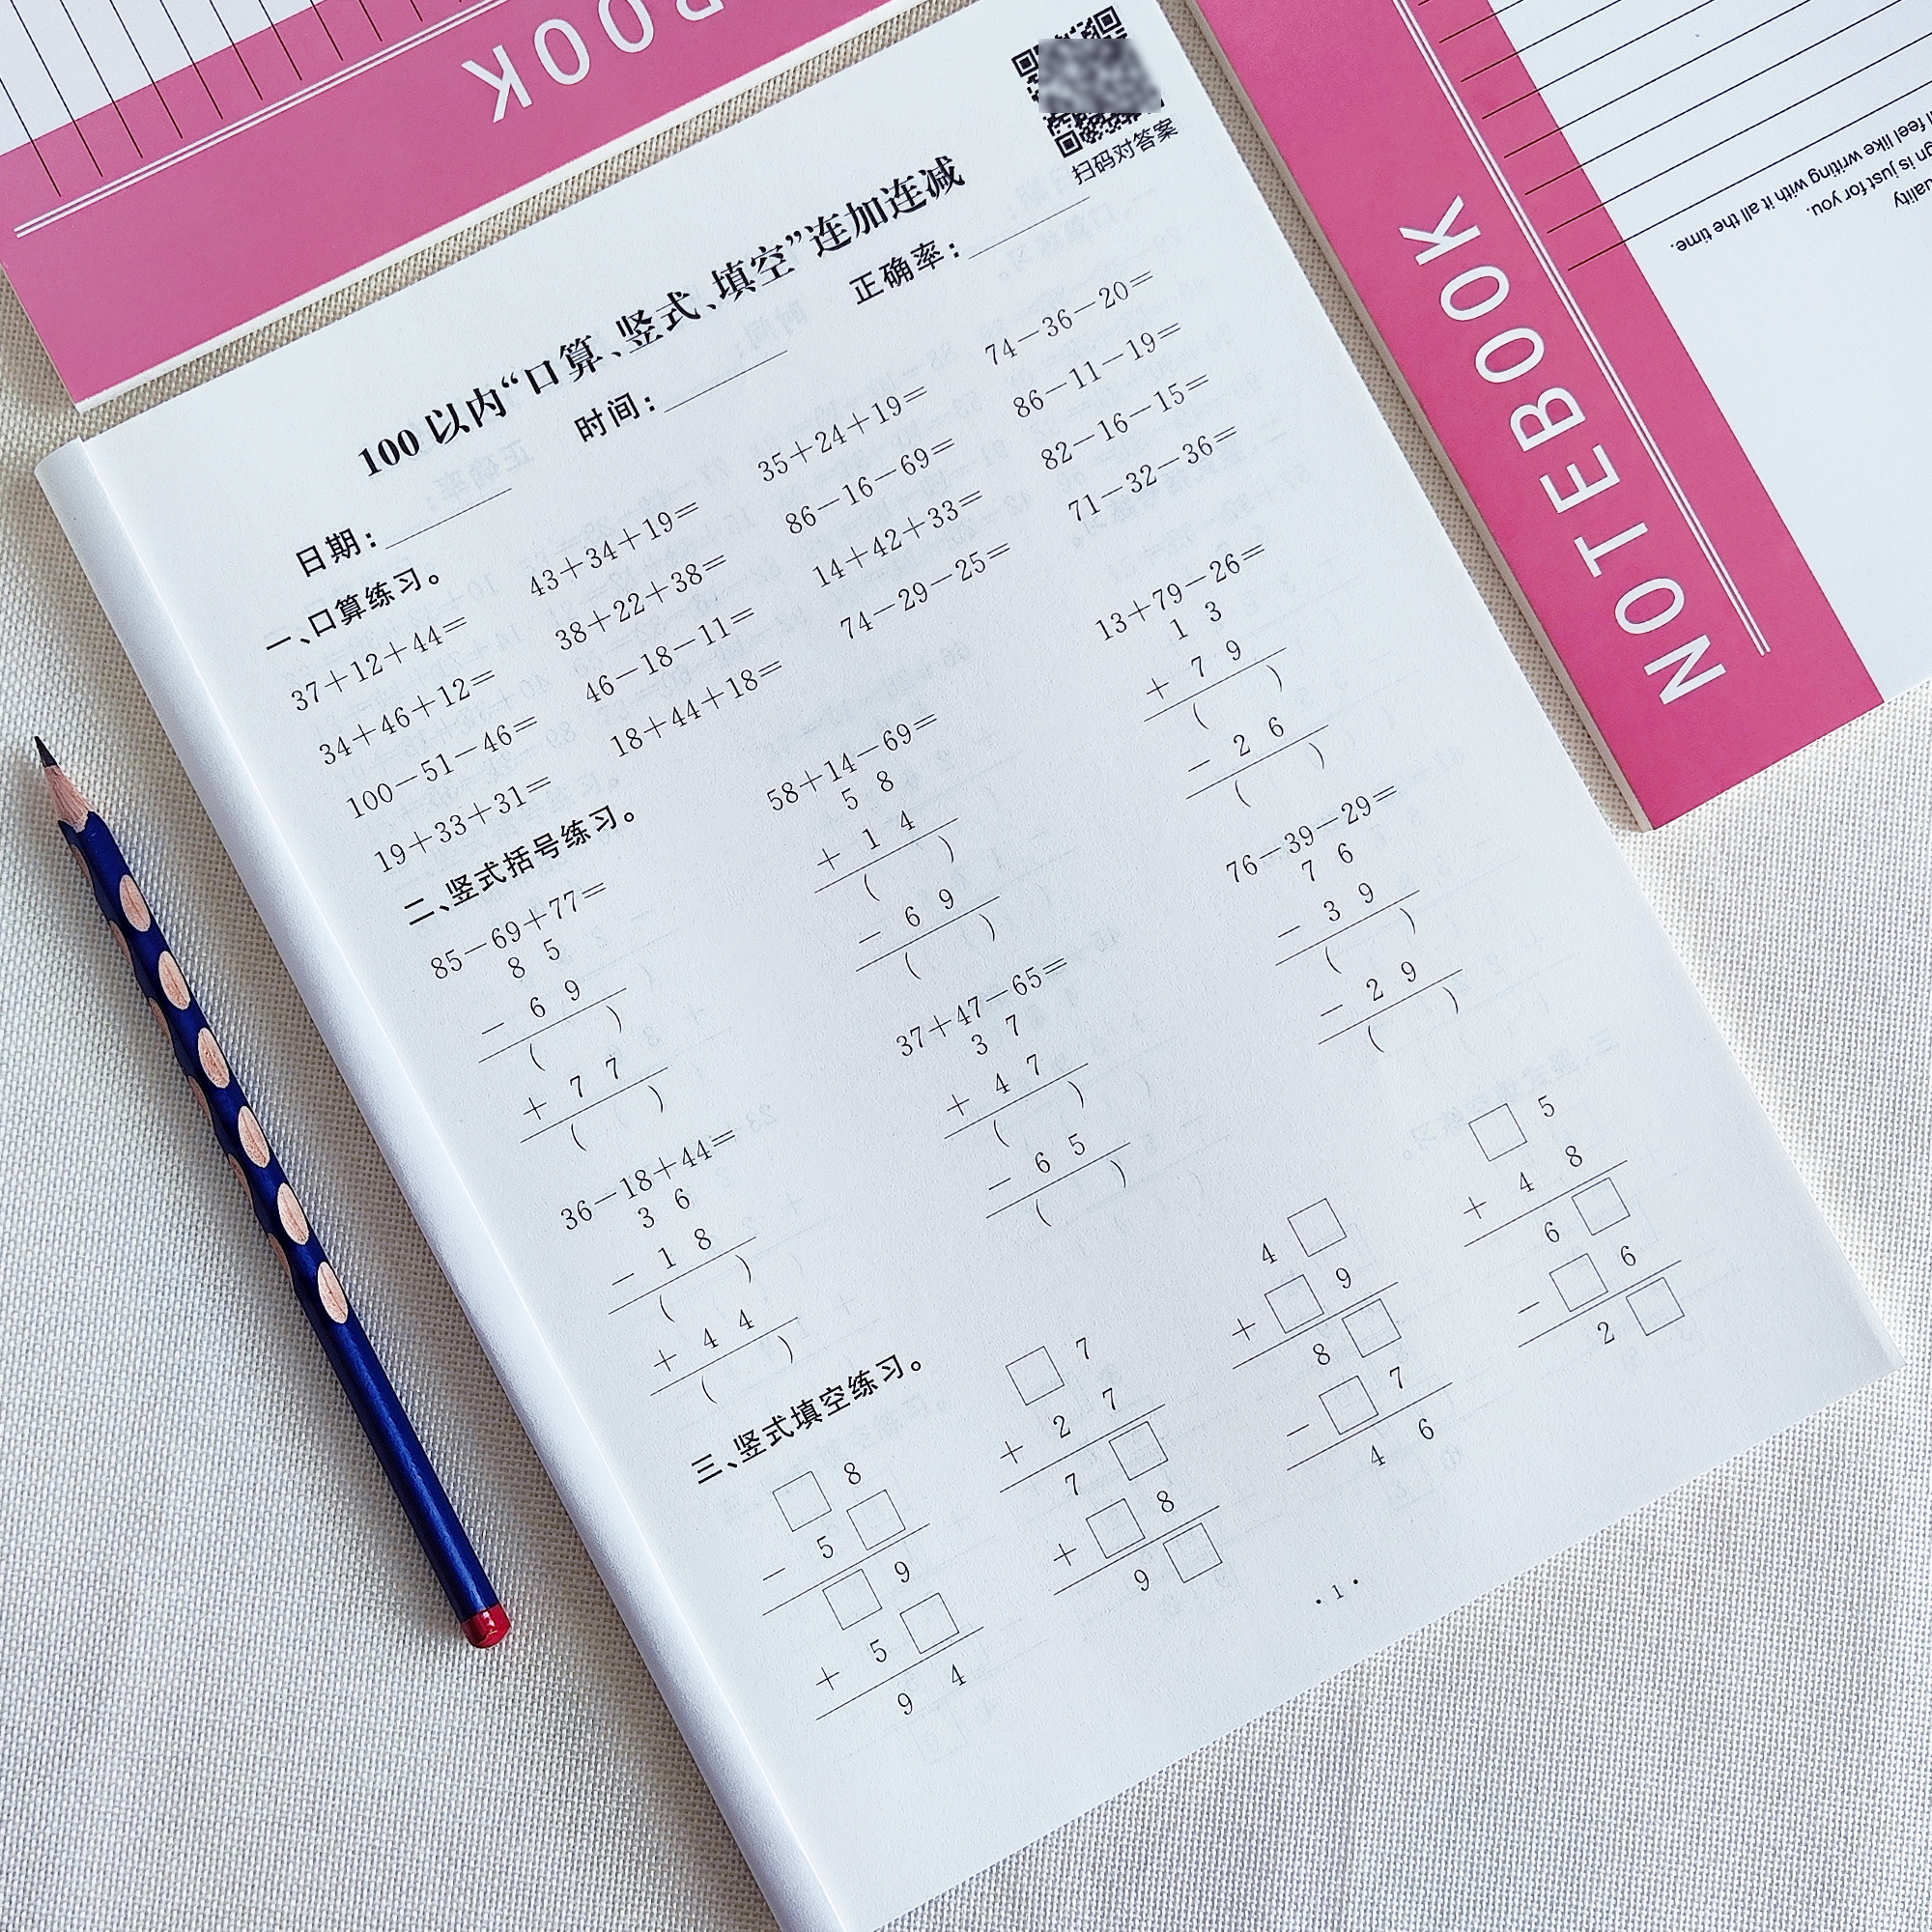 BOOK
NOTEBOOK
feel like writing with it all the time.
is just for you.
扫码对答案
100以内“口算、竖式、填空”连加连减
日期: 时间: 正确率:
一、口算练习。
37+12+44= 43+34+19= 35+24+19= 74-36-20=
34+46+12= 38+22+38= 86-16-69= 86-11-19=
100-51-46= 46-18-11= 14+42+33= 82-16-15=
19+33+31= 18+44+18= 74-29-25= 71-32-36=
二、竖式括号练习。
85-69+77= 58+14-69= 13+79-26=
8 5 5 8 1 3
- 6 9 + 1 4 + 7 9
( ) ( ) ( )
+ 7 7 - 6 9 - 2 6
( ) ( ) ( )
36-18+44= 37+47-65= 76-39-29=
3 6 3 7 7 6
- 1 8 + 4 7 - 3 9
( ) ( ) ( )
+ 4 4 - 6 5 - 2 9
( ) ( ) ( )
三、竖式填空练习。
□ 8 □ 7 4 □ □ 5
- 5 □ + 2 7 + □ 9 + 4 8
□ 9 7 □ 8 □ 6 □
+ 5 □ + □ 8 - □ 7 - □ 6
9 4 9 □ 4 6 2 □
· 1 ·